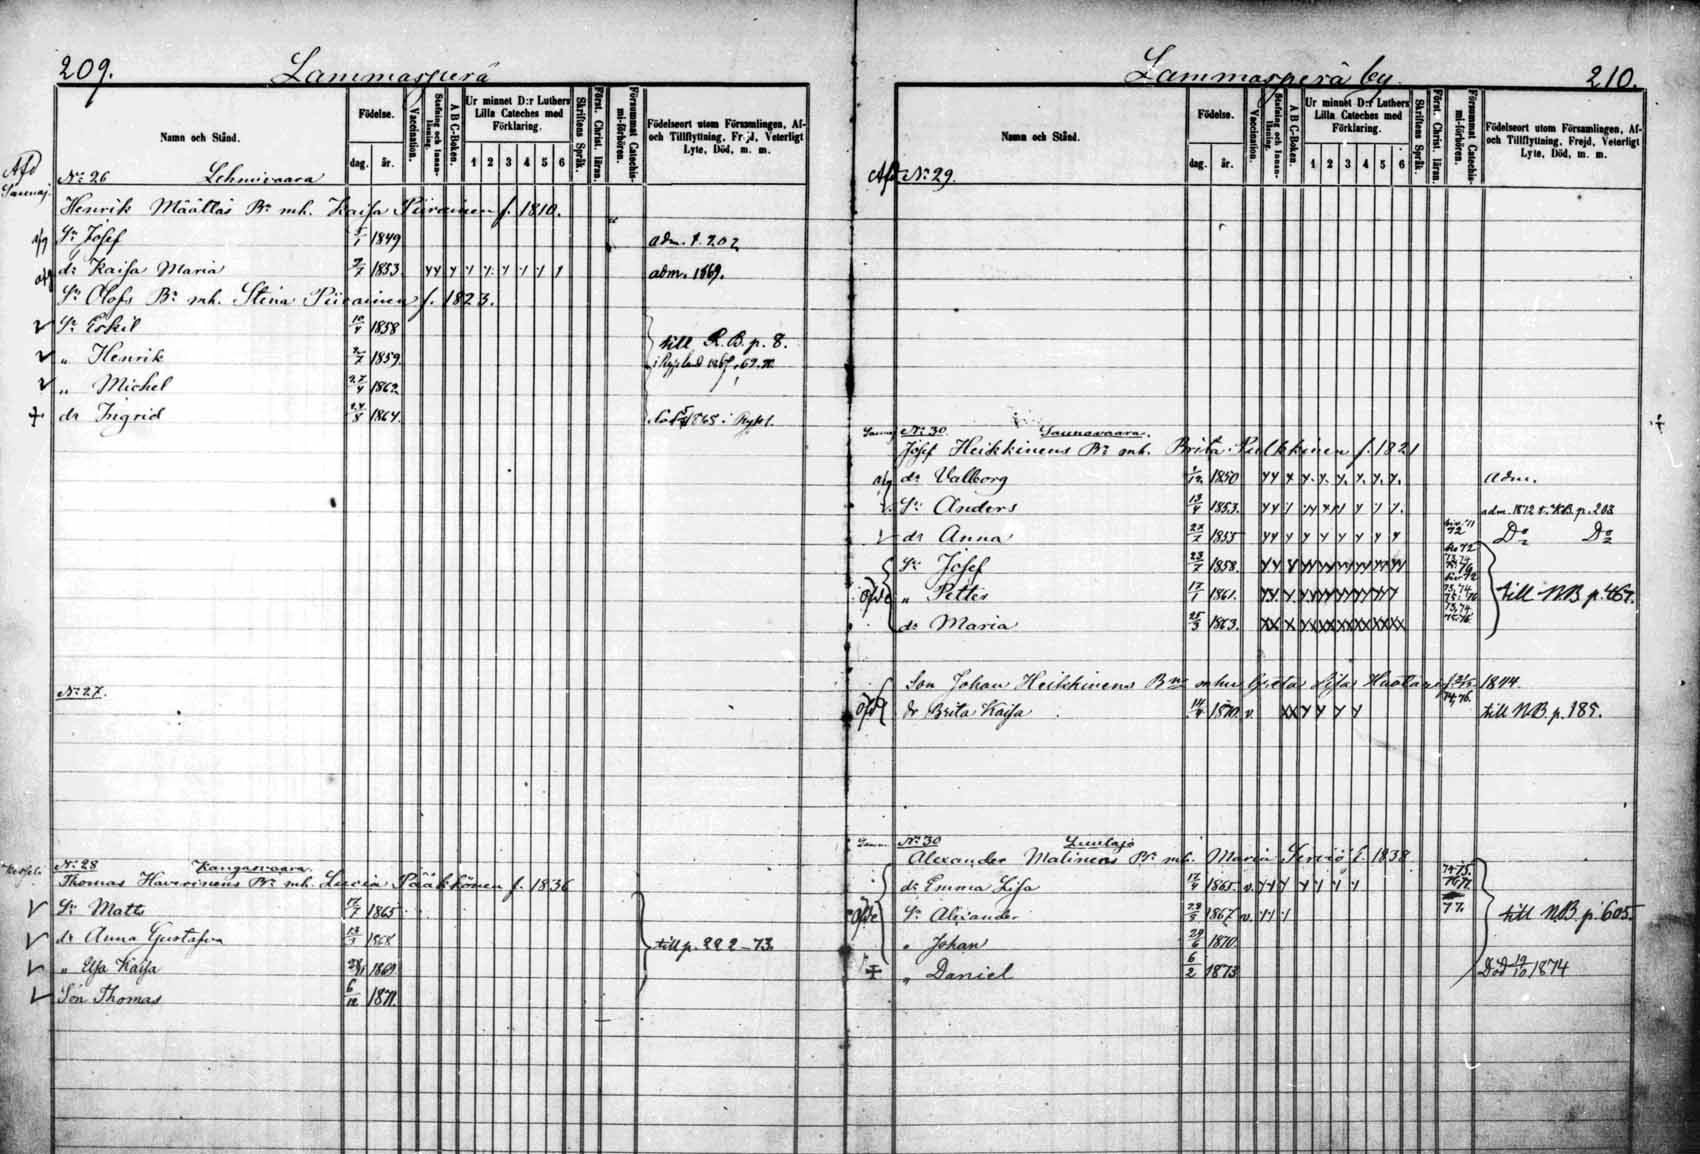 209.
Lammasperä
Namn och Stånd.
Födelse.
dag.
år.
Vaccination.
Stafning och Innan-läsning.
A B C-Boken.
Ur minnet D:r Luthers Lilla Cateches med Förklaring.
1 2 3 4 5 6
Skriftens Språk.
Först. Christ. läran.
Försummat Catechis-mi-förhören.
Födelseort utom Församlingen, Af- och Tillflyttning, Frejd, Veterligt Lyte, Död, m. m.
Afd
No 26 Lehmivaara
Henrik Määttäs Br mh. Kaisa Piirainen f. 1810.
Sn Josef 1849
dr Kaisa Maria 1853 adm. 1869.
Sn Olofs Br mh. Stina Piirainen f. 1823.
Sn Eskil 10/4 1858 till R.B. p. 8.
" Henrik 1859.
" Michel 27/4 1862
dr Ingrid 24/8 1864. 1865 i Ryssl.
No 27.
No 28 Kangasvaara
Thomas Haverinens Br mh. Lucia Pääkkönen f. 1836
Sn Matts 17/7 1865
dr Anna Gustafva 1868 till p. 222-73.
" Ulla Kaisa 1869
Son Thomas 6/12 1871.
Lammasperä by.
210.
Namn och Stånd.
Födelse.
dag.
år.
Vaccination.
Stafning och Innan-läsning.
A B C-Boken.
Ur minnet D:r Luthers Lilla Cateches med Förklaring.
1 2 3 4 5 6
Skriftens Språk.
Först. Christ. läran.
Försummat Catechis-mi-förhören.
Födelseort utom Församlingen, Af- och Tillflyttning, Frejd, Veterligt Lyte, Död, m. m.
No 29.
No 30 Saunavaara.
Josef Heikkinens Br mh. Brita Pulkkinen f. 1821
dr Valborg 1/12 1850 adm.
Sn Anders 13/4 1853. adm. 1872 t. K.B. p. 208
dr Anna 1855 72 Do Do
Sn Josef 23/7 1858.
" Petter 17/1 1861. till N.B p. 467.
dr Maria 25/3 1863.
Son Johan Heikkinens Bne m hu Greta Lisa 1844.
dr Brita Kaisa 14/4 1870. v. till N.B. p. 185.
No 30 Luulaja
Alexander Malinens Br mh. Maria Serviö f. 1838
dr Emma Lisa 17/4 1865. v.
Sn Alexander 1867 v. 77. till N.B. p. 605.
" Johan 29/6 1870.
" Daniel 6/2 1873 Död 19/10 1874